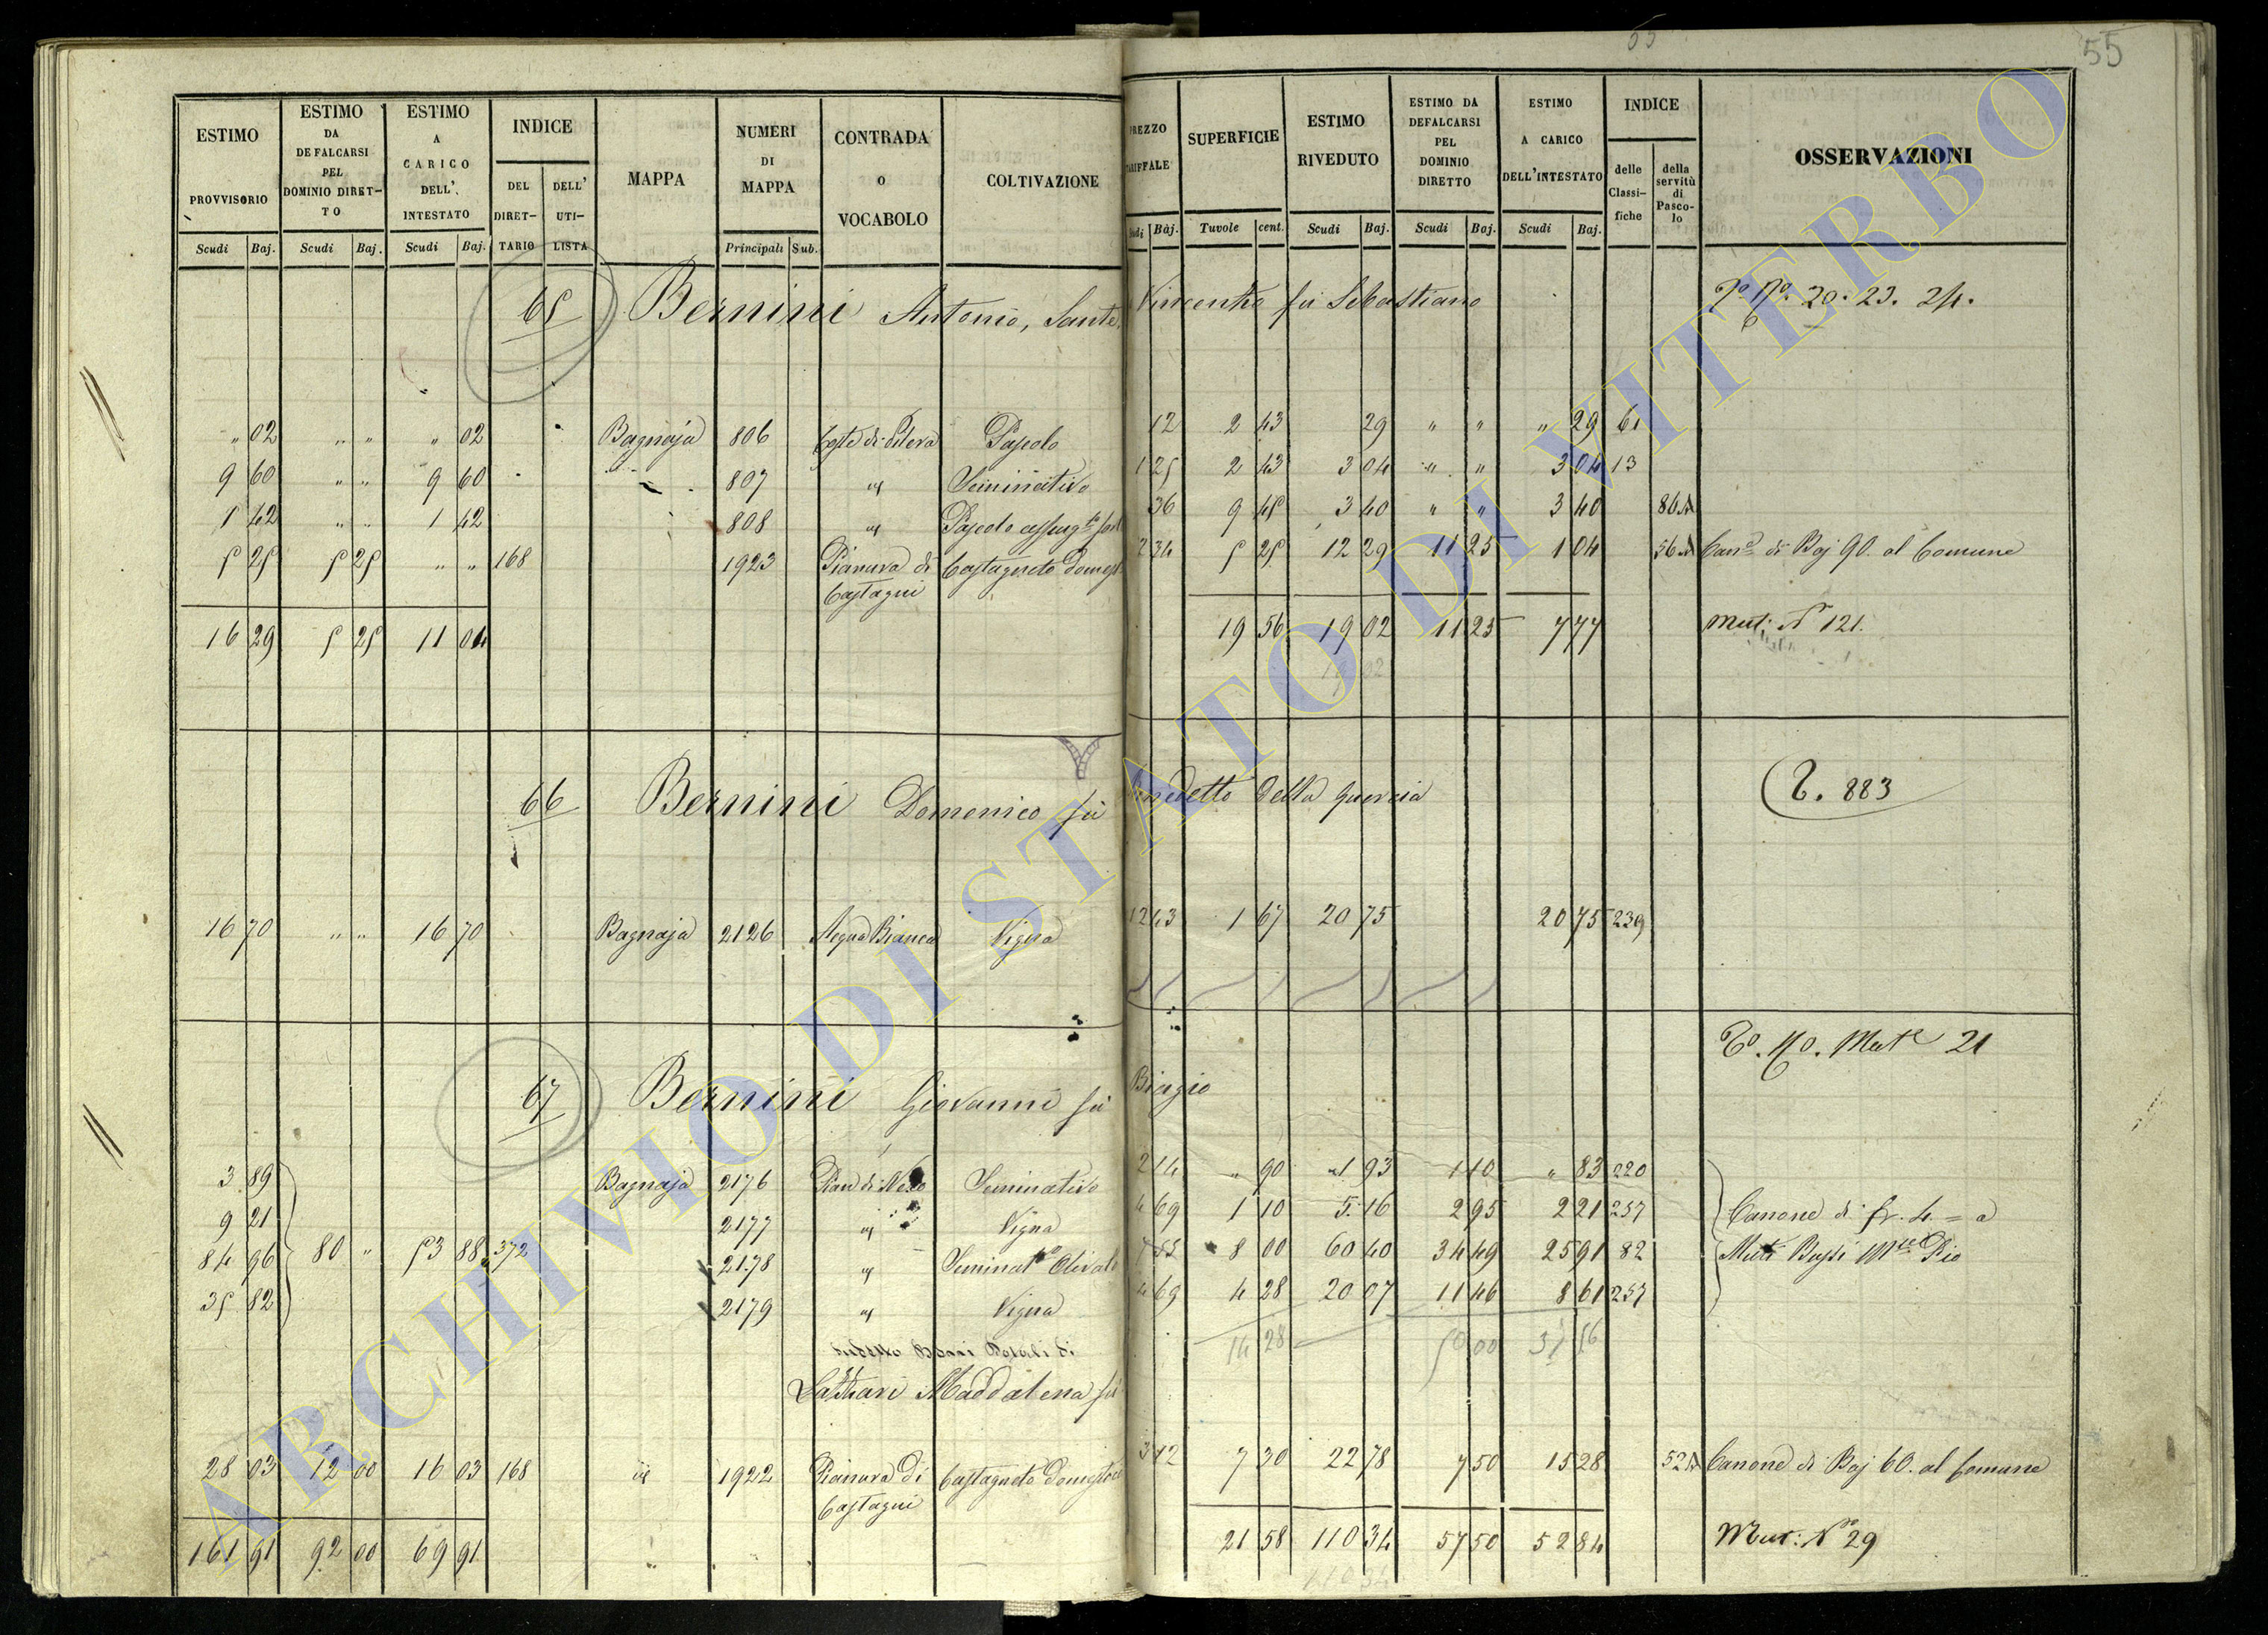 55
ESTIMO PROVVISORIO
ESTIMO DA DEFALCARSI PEL DOMINIO DIRET-TO
ESTIMO A CARICO DELL' INTESTATO
INDICE
DEL DIRET-TARIO
DELL' UTI-LISTA
MAPPA
NUMERI DI MAPPA
CONTRADA O VOCABOLO
COLTIVAZIONE
PREZZO TARIFFALE
SUPERFICIE
ESTIMO RIVEDUTO
ESTIMO DA DEFALCARSI PEL DOMINIO DIRETTO
ESTIMO A CARICO DELL'INTESTATO
INDICE
delle Classi-fiche
della servitù di Pasco-lo
OSSERVAZIONI
Scudi Baj. Scudi Baj. Scudi Baj. Principali Sub.
Scudi Baj. Tavole cent. Scudi Baj. Scudi Baj. Scudi Baj.
65 Bernini Antonio, Sante, Vincenzo fu Sebastiano 20. 23. 24.
" 02 " " " 02 Bagnaja 806 Coste di Pilera Pascolo 12 2 43 29 " " " 29 61
9 60 " " 9 60 " 807 " Seminativo 1 25 2 43 3 04 " " 3 04 13
1 42 " " 1 42 808 " Pascolo 36 9 45 3 40 " " 3 40 86 A
5 25 5 25 " " 168 1923 Pianura di Castagni Castagneto domest 2 34 5 25 12 29 11 25 1 04 56 A Cane di Baj 90. al Comune
16 29 5 25 11 04 19 56 19 02 11 25 7 77 Mut: N 121.
19 02
66 Bernini Domenico fu Benedetto della Quercia T. 883
16 70 " " 16 70 Bagnaja 2126 Acqua Bianca Vigna 12 43 1 67 20 75 20 75 239
67 Bernini Giovanni fu Biagio To. No. Mute 21
3 89 Bagnaja 2176 Pian di Nero Seminativo 2 14 " 90 1 93 1 10 " 83 220
9 21 2177 " Vigna 4 69 1 10 5 16 2 95 2 21 257 Canone di fr. 4 = a
84 96 80 " 53 88 372 2178 " Seminato Olivato 7 55 8 00 60 40 34 49 25 91 82
35 82 2179 " Vigna 4 69 4 28 20 07 11 46 8 61 257
14 28 50 00 37 56
suddetto Beni Dotali di
Lattari Maddalena fu
28 03 12 00 16 03 168 " 1922 Pianura di Castagni Castagneto domestico 3 12 7 30 22 78 7 50 15 28 52 A Canone di Baj 60. al Comune
161 91 92 00 69 91 21 58 110 34 57 50 52 84 Mut: No 29
110 34
ARCHIVIO DI STATO DI VITERBO